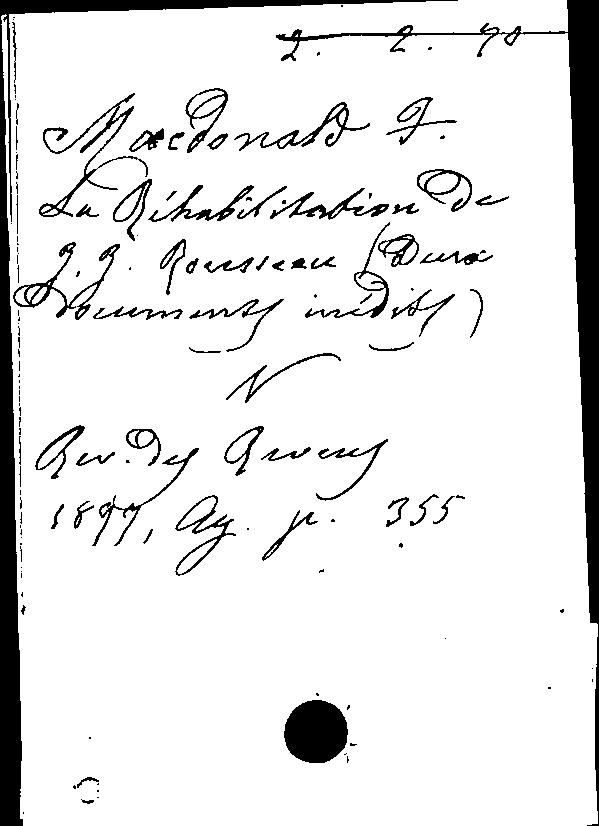 2. 2. 70
Macdonald F.
La Réhabilitation de
J. J. Rousseau (Deux
documents inédits)
Rev. des Revues
1897, Ag. p. 355